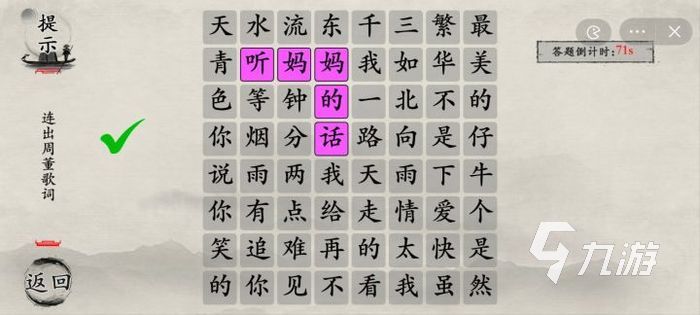 提示
连出周董歌词
返回
答题倒计时：71s
天水流东千三繁最
青听妈妈我如华美
色等钟的一北不的
你烟分话路向是仔
说雨两我天雨下牛
你有点给走情爱个
笑追难再的太快是
的你见不看我虽然
九游